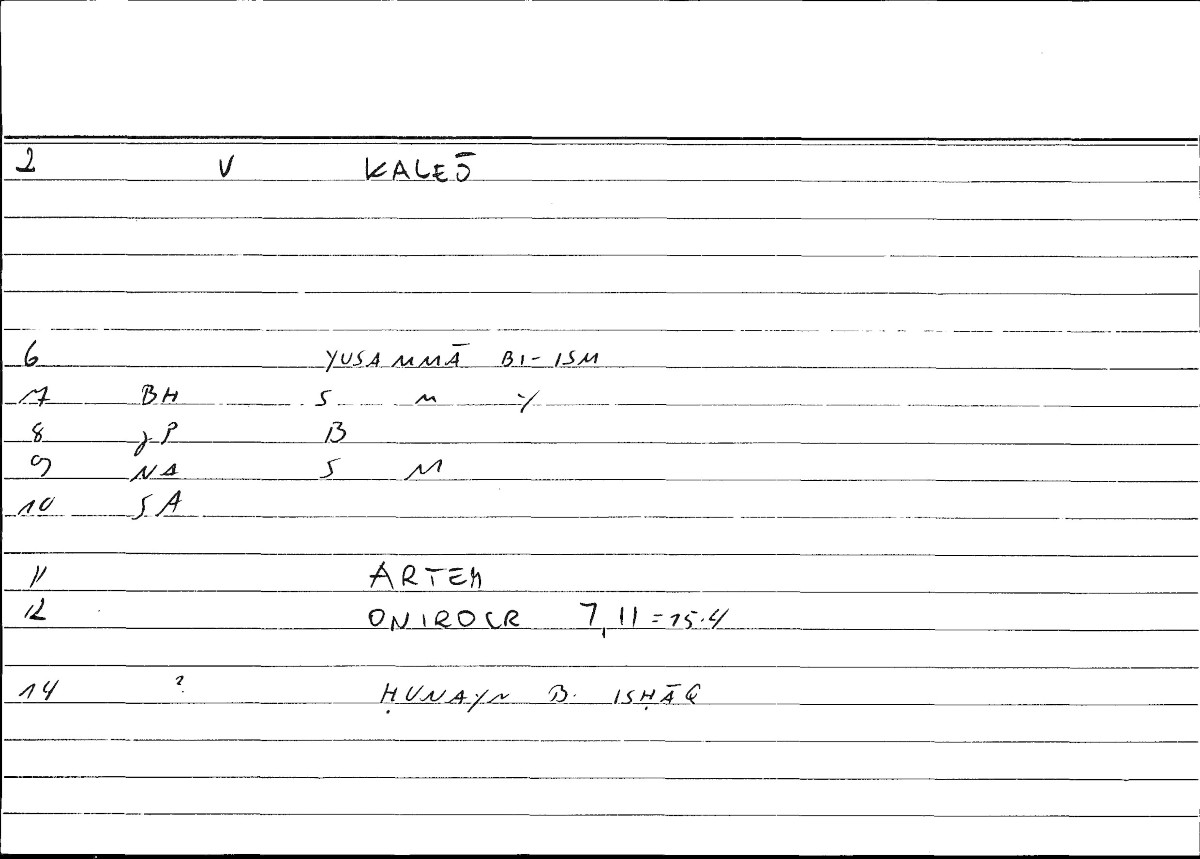 2 V KALEŌ
6 YUSAMMĀ BI-ISM
7 BH S M Y
8 jP B
9 NA S M
10 SA
11 ARTEM
12 ONIROCR 7,11 = 15.4
14 ? ḤUNAYN B. ISḤĀQ